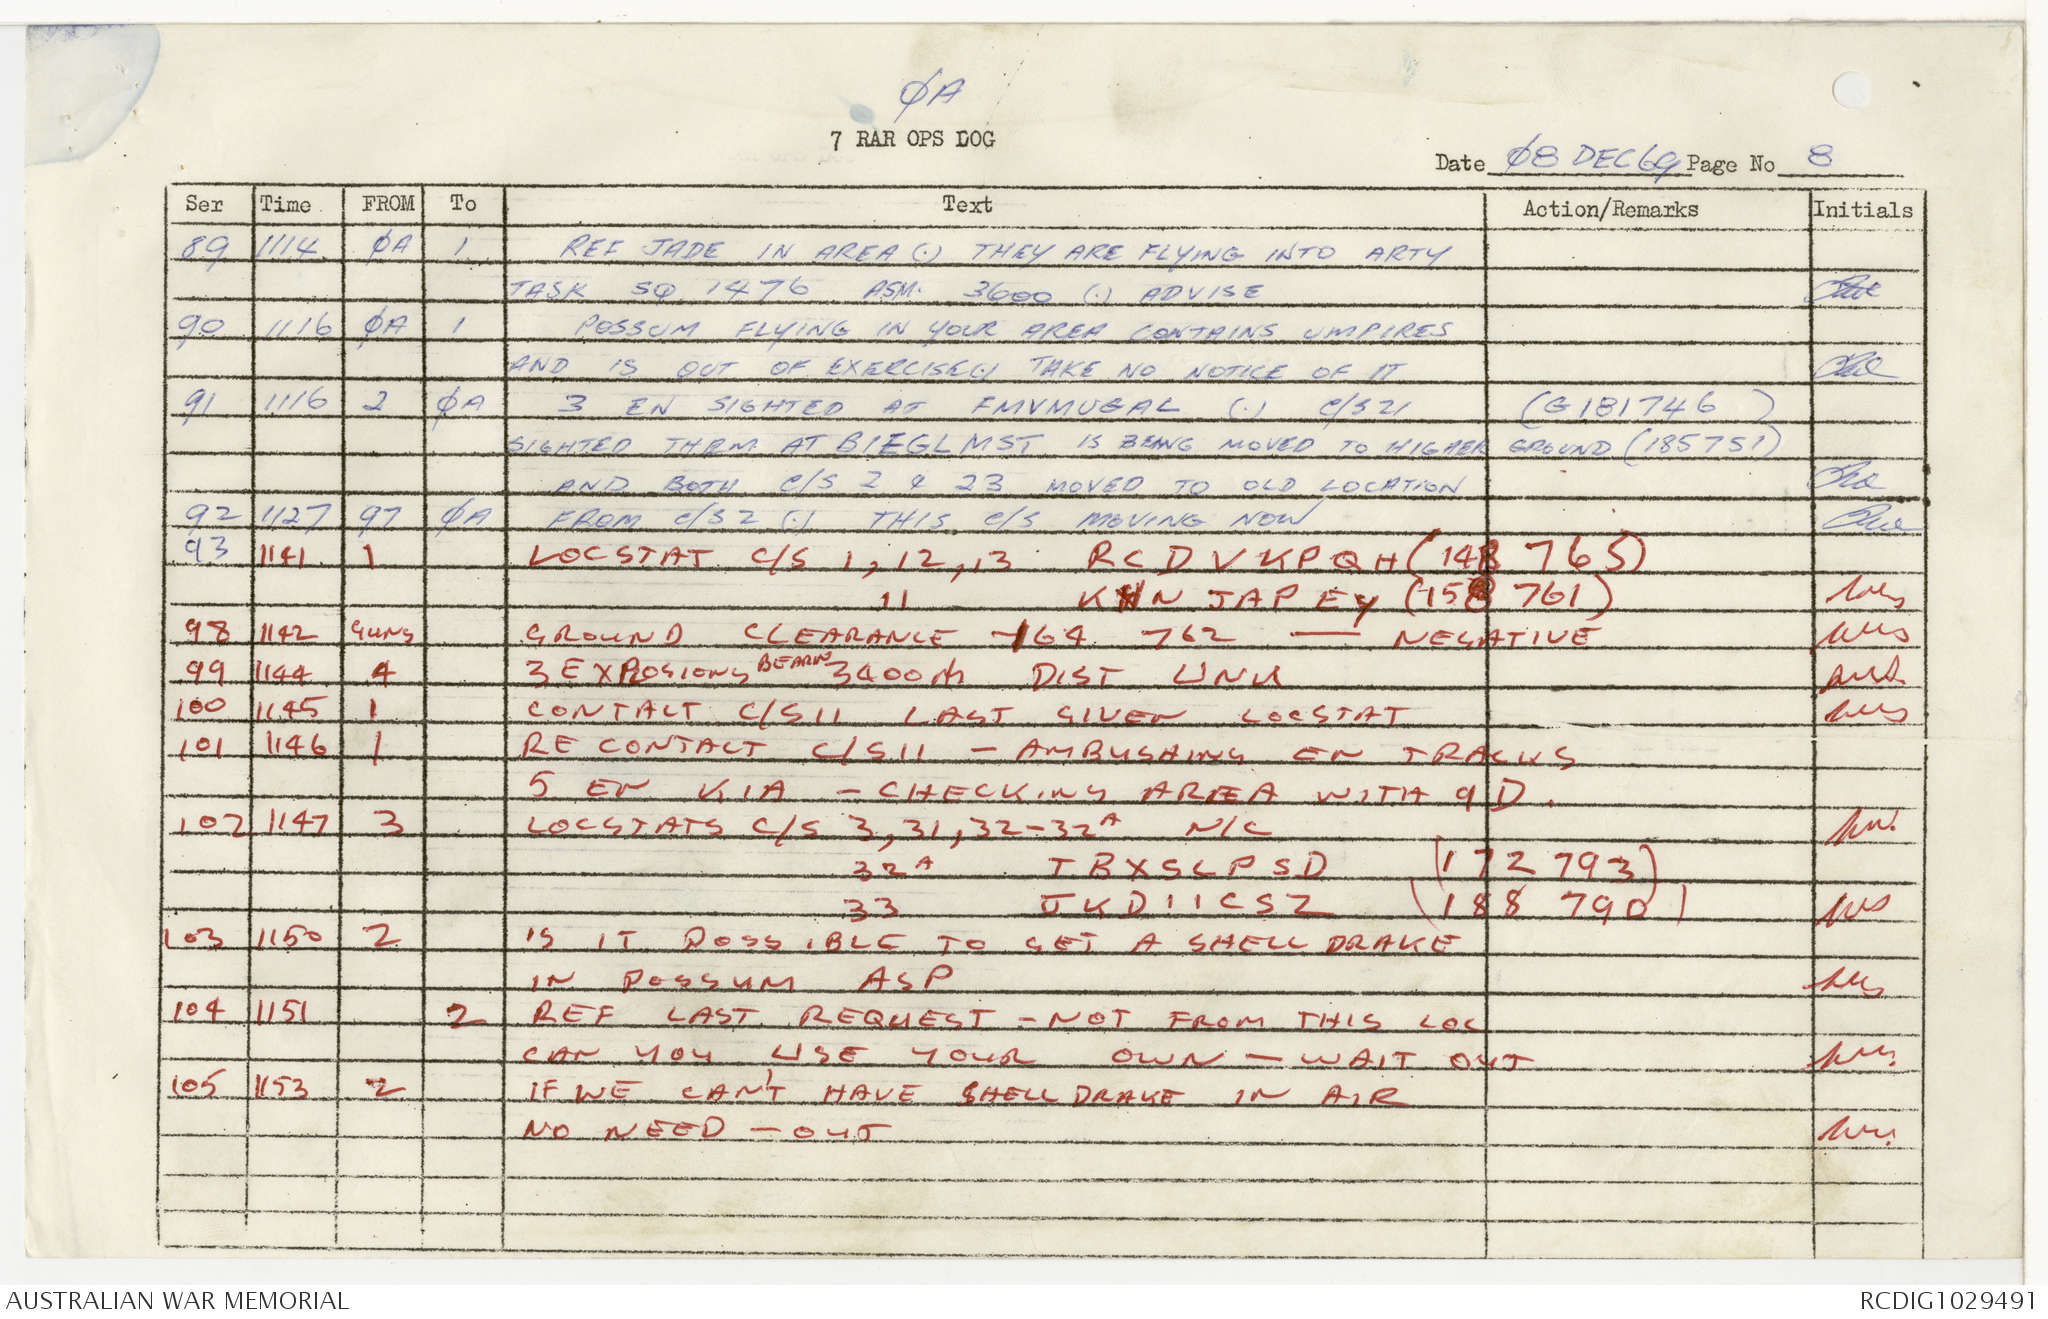 ØA
7 RAR OPS LOG
Date Ø8 DEC 69 Page No 8
Ser Time FROM To Text Action/Remarks Initials
89 1114 ØA 1 REF JADE IN AREA (.) THEY ARE FLYING INTO ARTY
TASK SQ 1476 ASM 3600 (.) ADVISE
90 1116 ØA 1 POSSUM FLYING IN YOUR AREA CONTAINS UMPIRES
AND IS OUT OF EXERCISE (.) TAKE NO NOTICE OF IT
91 1116 2 ØA 3 EN SIGHTED AT FMVMUGAL (.) C/S 21 (G181746)
SIGHTED THEM AT BIEGLMST IS BEING MOVED TO HIGHER GROUND (185751)
AND BOTH C/S 2 & 23 MOVED TO OLD LOCATION
92 1127 97 ØA FROM C/S 2 (.) THIS C/S MOVING NOW
93 1141 1 LOCSTAT C/S 1, 12, 13 RCDVKPQH (148 765)
11 KHN JAPEY (158 761)
98 1142 GUNS GROUND CLEARANCE - 164 762 — NEGATIVE
99 1144 4 3 EXPLOSIONS BEARIN 3400 m DIST UNK
100 1145 1 CONTACT C/S 11 LAST GIVEN LOCSTAT
101 1146 1 RE CONTACT C/S 11 - AMBUSHING EN TRACKS
5 EN KIA - CHECKING AREA WITH 9D.
102 1147 3 LOCSTATS C/S 3, 31, 32-32A N/C
32A TBXSLPSD (172 793)
33 JKDIICSZ (188 790)
103 1150 2 IS IT POSSIBLE TO GET A SHELLDRAKE
IN POSSUM ASP
104 1151 2 REF LAST REQUEST - NOT FROM THIS LOC
CAN YOU USE YOUR OWN - WAIT OUT
105 1153 2 IF WE CAN'T HAVE SHELLDRAKE IN AIR
NO NEED - OUT
AUSTRALIAN WAR MEMORIAL RCDIG1029491